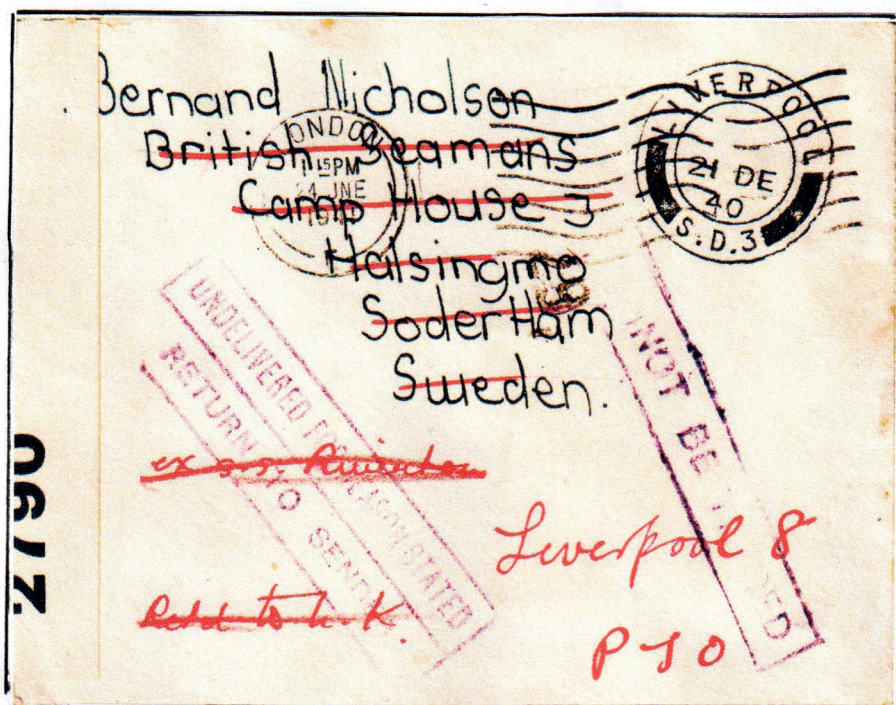 Bernand Nicholson
British Seamans
Camp House 3
Halsingmo
SoderHam
Sweden.
LONDON
1 15PM
24 JNE
19
LIVERPOOL
21 DE
40
S.D.3
UNDELIVERED FOR REASON STATED
RETURN TO SENDER
NOT BE
ex s.s.
Retd to U.K.
Liverpool 8
P T O
2790